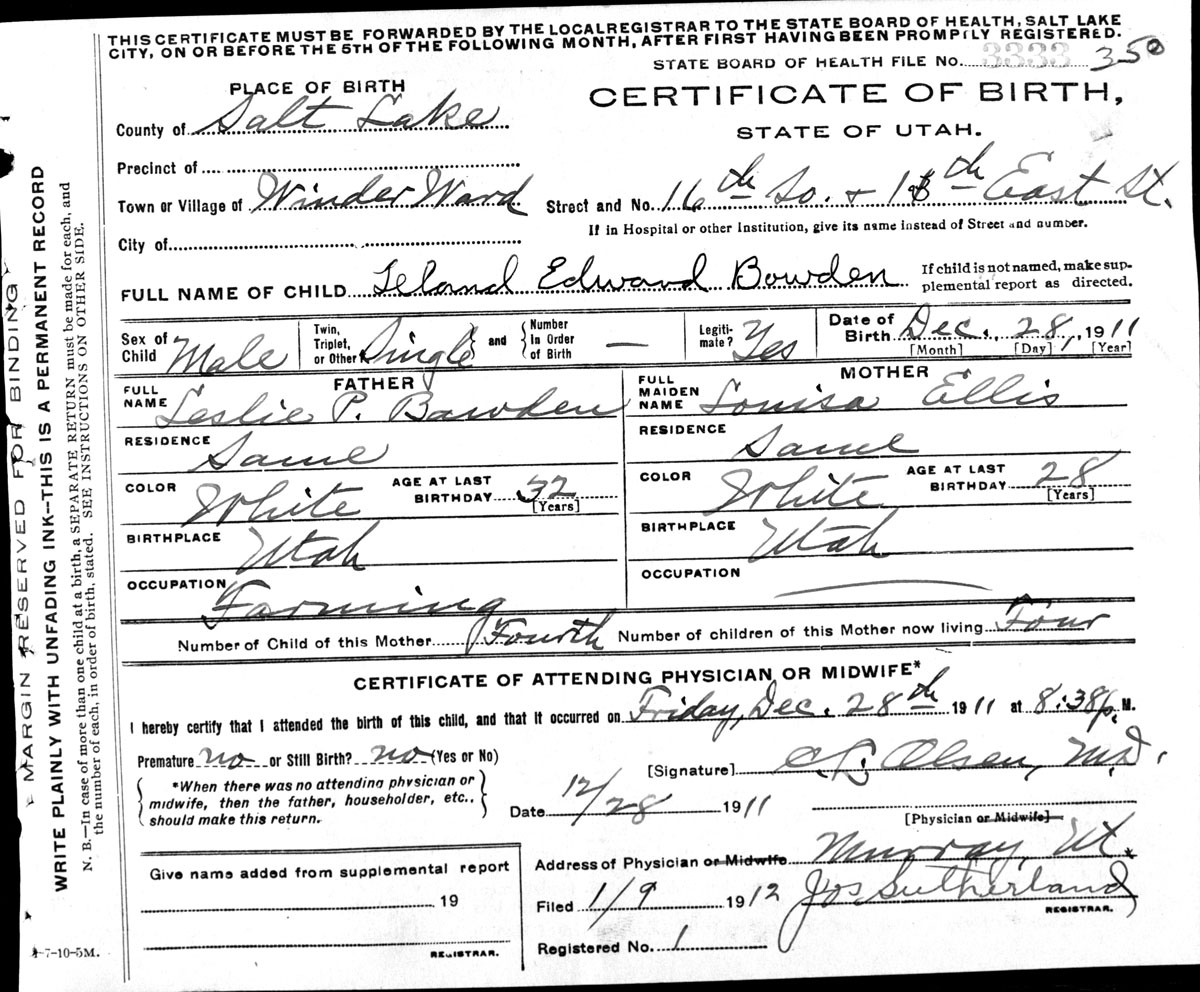 THIS CERTIFICATE MUST BE FORWARDED BY THE LOCAL REGISTRAR TO THE STATE BOARD OF HEALTH, SALT LAKE
CITY, ON OR BEFORE THE 5TH OF THE FOLLOWING MONTH, AFTER FIRST HAVING BEEN PROMPTLY REGISTERED.
STATE BOARD OF HEALTH FILE No. 3333 350
PLACE OF BIRTH
CERTIFICATE OF BIRTH,
STATE OF UTAH.
County of Salt Lake
Precinct of
Town or Village of Winder Ward Street and No. 16th So. + 13th East St.
If in Hospital or other Institution, give its name instead of Street and number.
City of
FULL NAME OF CHILD Leland Edward Bowden
If child is not named, make sup-
plemental report as directed.
Sex of Child Male Twin, Triplet, or Other Single and Number In Order of Birth — Legiti-mate? Yes Date of Birth Dec. 28, 1911
[Month] [Day] [Year]
FATHER
FULL NAME Leslie P. Bawden
RESIDENCE Same
COLOR White AGE AT LAST BIRTHDAY 32
[Years]
BIRTHPLACE Utah
OCCUPATION Farming
MOTHER
FULL MAIDEN NAME Louisa Ellis
RESIDENCE Same
COLOR White AGE AT LAST BIRTHDAY 28
[Years]
BIRTHPLACE Utah
OCCUPATION
Number of Child of this Mother Fourth Number of children of this Mother now living Four
CERTIFICATE OF ATTENDING PHYSICIAN OR MIDWIFE*
I hereby certify that I attended the birth of this child, and that it occurred on Friday, Dec. 28th 1911 at 8:38 p. M.
Premature no or Still Birth? no (Yes or No)
*When there was no attending physician or
midwife, then the father, householder, etc.,
should make this return.
[Signature] Olsen, M.D.
Date 12/28 1911
[Physician or Midwife]
Address of Physician or Midwife Murray, Ut.
Filed 1/9 1912 Jos Sutherland
REGISTRAR.
Registered No. 1
Give name added from supplemental report
19
REGISTRAR.
4-7-10-5M.
MARGIN RESERVED FOR BINDING
WRITE PLAINLY WITH UNFADING INK—THIS IS A PERMANENT RECORD
N. B.—In case of more than one child at a birth, a SEPARATE RETURN must be made for each, and
the number of each, in order of birth, stated. SEE INSTRUCTIONS ON OTHER SIDE.